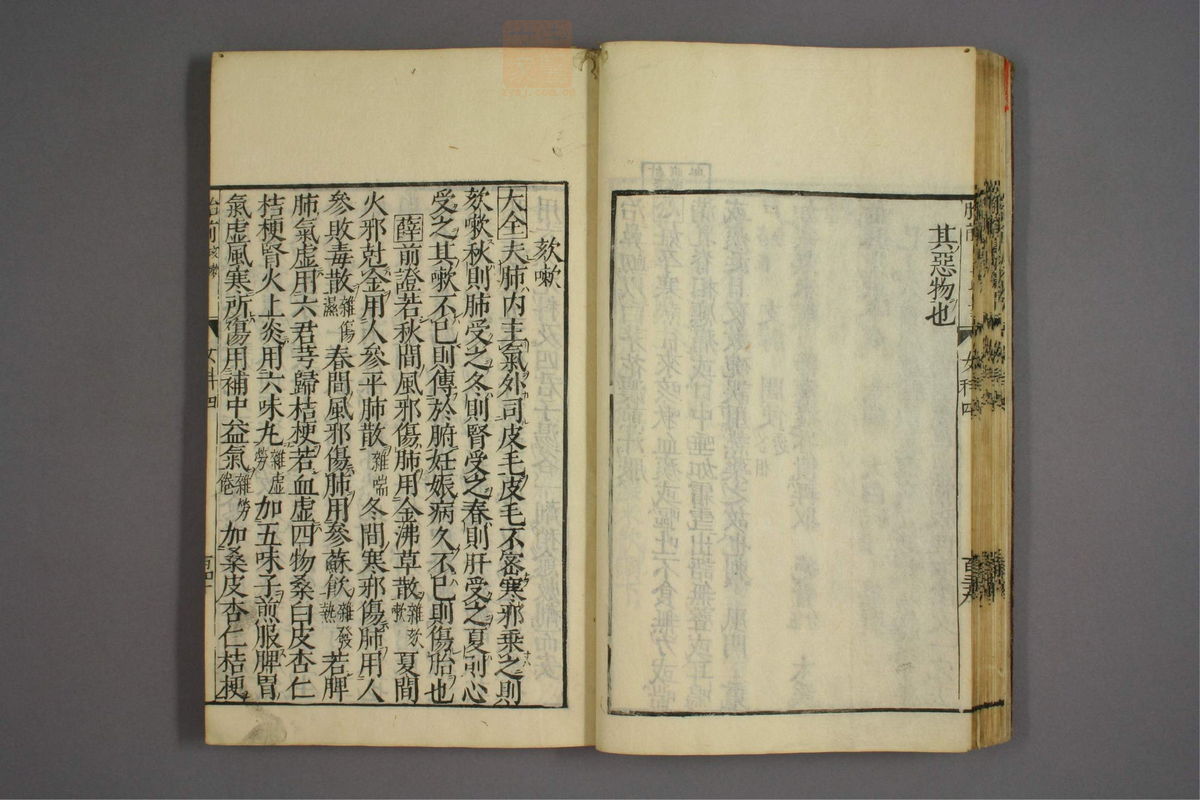 其惡物也
女科四
欬嗽
大全夫肺内主氣外司皮毛皮毛不密寒邪乘之則
欬嗽秋則肺受之冬則腎受之春則肝受之夏則心
受之其嗽不已則傳於腑妊娠病久不已則傷胎也
薛前證若秋間風邪傷肺用金沸草散雜欬嗽夏間
火邪尅金用人參平肺散雜喘冬間寒邪傷肺用人
參敗毒散雜傷濕春間風邪傷肺用參蘇飲雜發熱若脾
肺氣虛用六君芎歸桔梗若血虛四物桑白皮杏仁
桔梗腎火上炎用六味丸雜虛勞加五味子煎服脾胃
氣虛風寒所傷用補中益氣雜勞倦加桑皮杏仁桔梗
胎前欬嗽
女科四